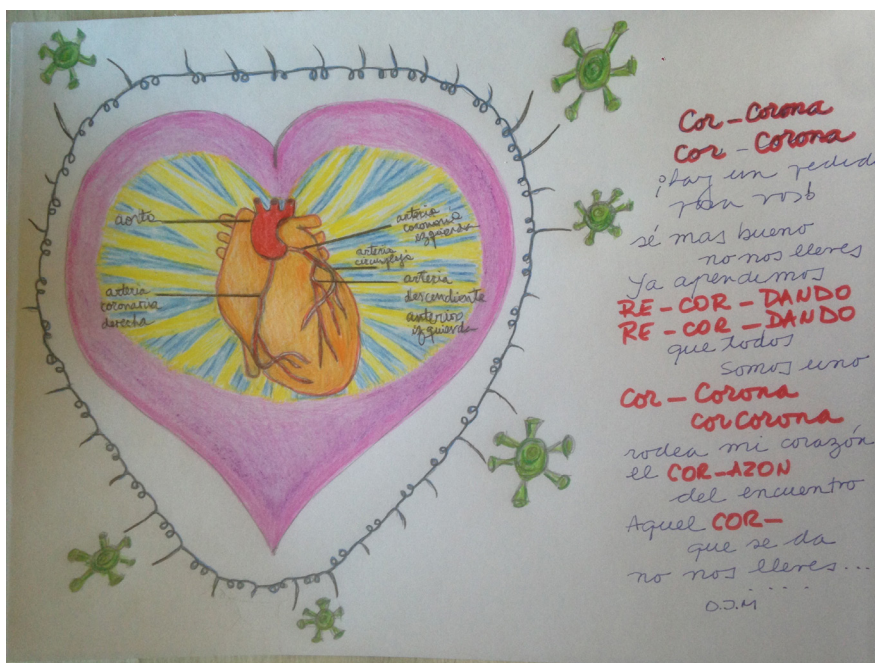 aorta
arteria
coronaria
derecha
arteria
coronaria
izquierda
arteria
circunfleja
arteria
descendiente
anterior
izquierda
Cor-Corona
Cor-Corona
¡hay un pedid
para vos!
sé mas bueno
no nos lleves
Ya aprendimos
RE-COR-DANDO
RE-COR-DANDO
que todos
somos uno
Cor-Corona
corCorona
rodea mi corazón
el COR-AZON
del encuentro
Aquel COR-
que se da
no nos lleves...
....
O.J.M